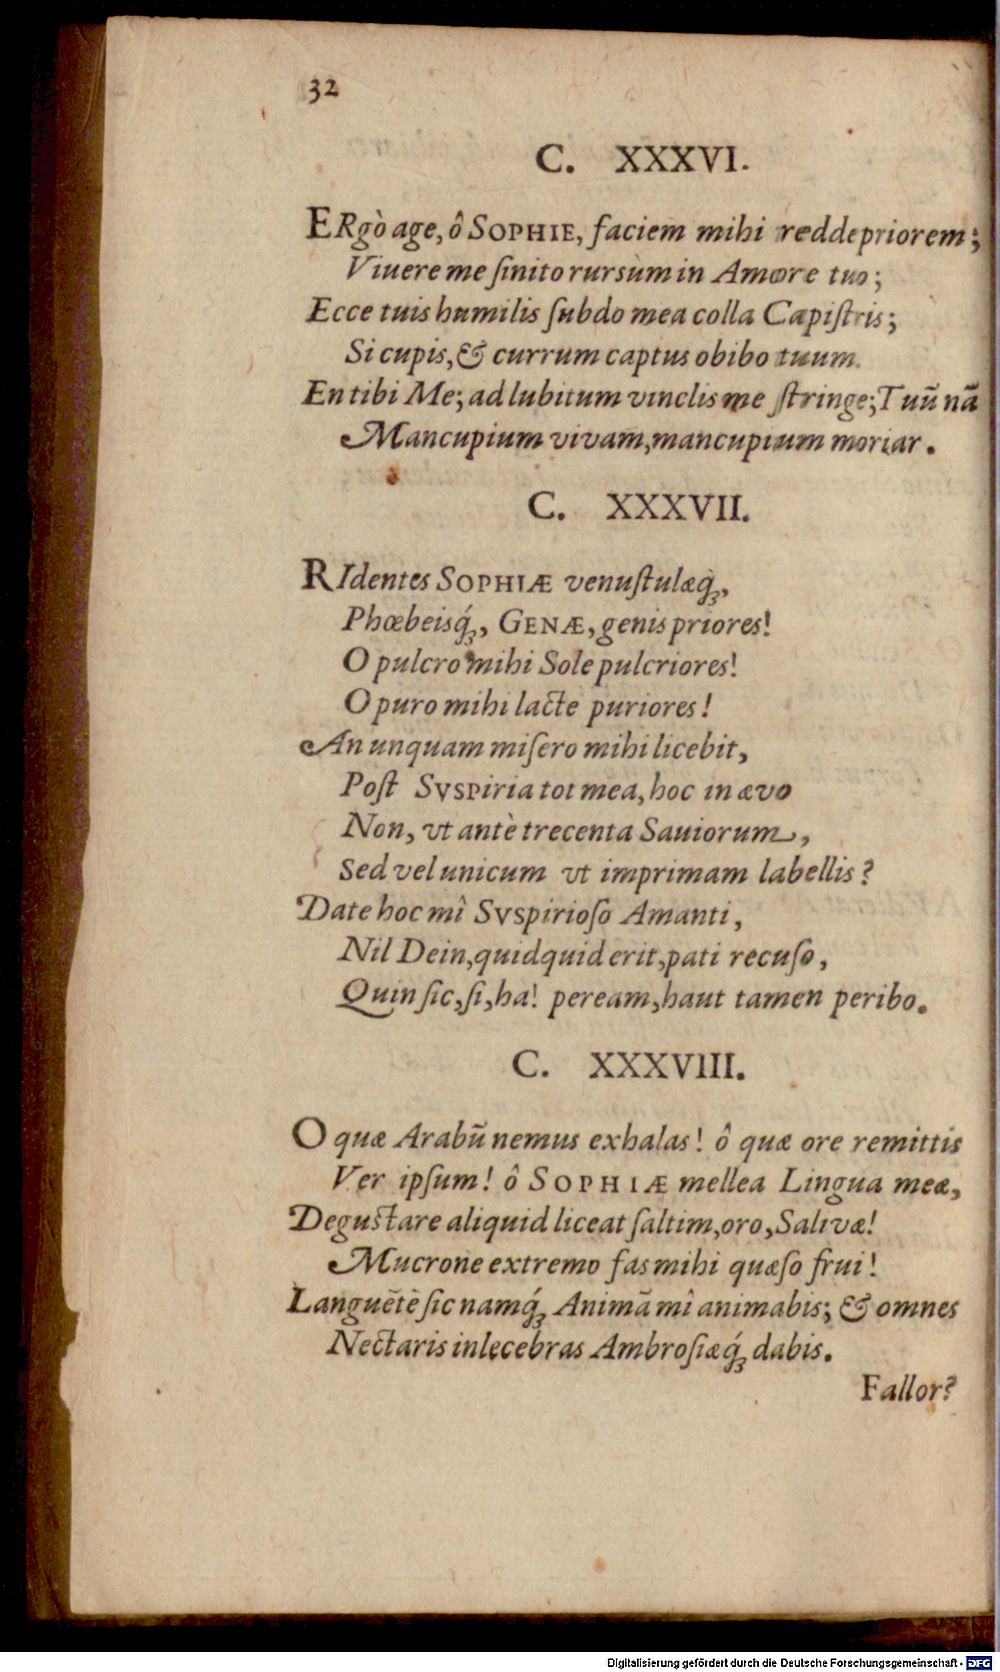 32
C. XXXVI.
ERgò age, ô SOPHIE, faciem mihi redde priorem;
Viuere me ſinito rursùm in Amore tuo;
Ecce tuis humilis ſubdo mea colla Capiſtris;
Si cupis, & currum captus obibo tuum.
En tibi Me; ad lubitum vinclis me ſtringe; Tuũ nã
Mancupium vivam, mancupium moriar.
C. XXXVII.
RIdentes SOPHIÆ venuſtulæq́ꝫ,
Phœbeisq́ꝫ, GENÆ, genis priores!
O pulcro mihi Sole pulcriores!
O puro mihi lacte puriores!
An unquam miſero mihi licebit,
Poſt SVSPiria tot mea, hoc in ævo
Non, vt antè trecenta Sauiorum,
Sed vel unicum vt imprimam labellis?
Date hoc mî SVSpirioſo Amanti,
Nil Dein, quidquid erit, pati recuſo,
Quin ſic, ſi, ha! peream, haut tamen peribo.
C. XXXVIII.
O quæ Arabũ nemus exhalas! ô quæ ore remittis
Ver ipſum! ô SOPHIÆ mellea Lingua meæ,
Deguſtare aliquid liceat ſaltim, oro, Salivæ!
Mucrone extremo fas mihi quæſo frui!
Languẽtè ſic namq́ꝫ Animã mî animabis; & omnes
Nectaris inlecebras Ambroſiæq́ꝫ dabis.
Fallor?
Digitalisierung gefördert durch die Deutsche Forschungsgemeinschaft - DFG